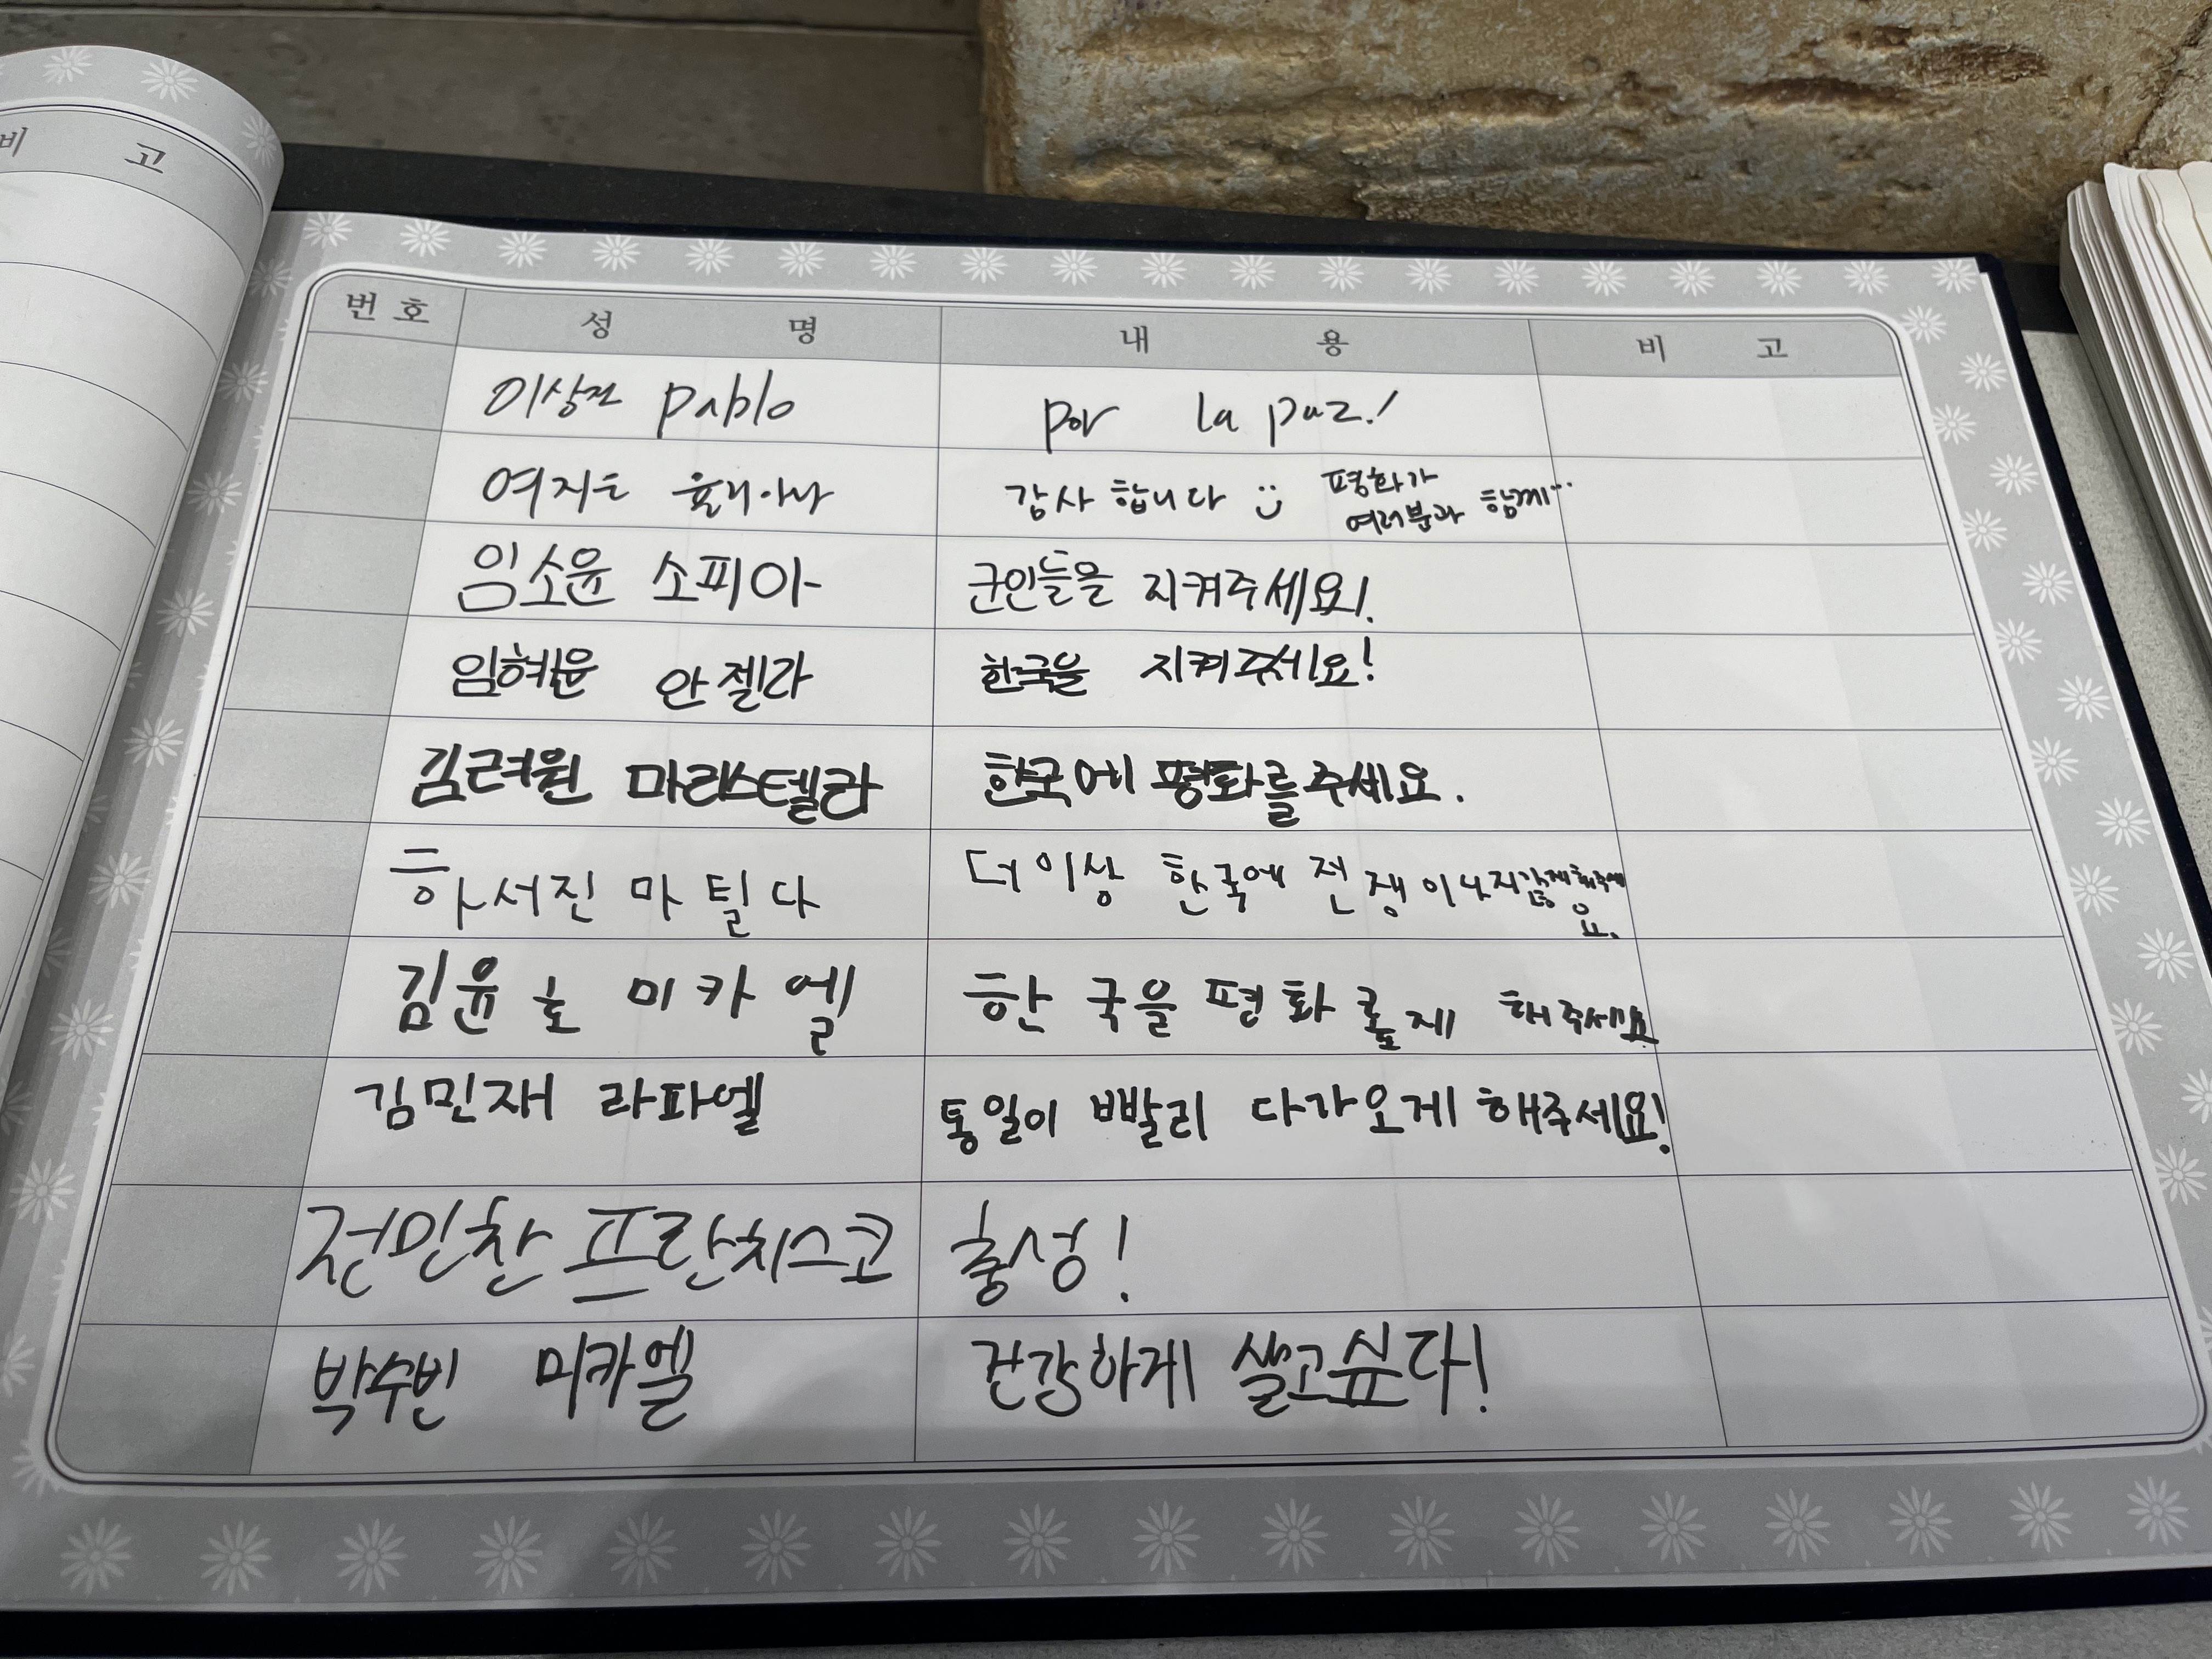 비 고
번 호 성 명 내 용 비 고
이상진 pablo por la paz!
여지은 율리아나 감사합니다 평화가
여러분과 함께…
임소윤 소피아 군인들을 지켜주세요!
임혜윤 안젤라 한국을 지켜주세요!
김려원 마리스텔라 한국에 평화를주세요.
하서진 마틸다 더이상 한국에 전쟁이나지않게해주세
요.
김윤호 미카엘 한국을 평화롭게 해주세요
김민재 라파엘 통일이 빨리 다가오게 해주세요!
전민찬 프란치스코 충성!
박수빈 미카엘 건강하게 살고싶다!